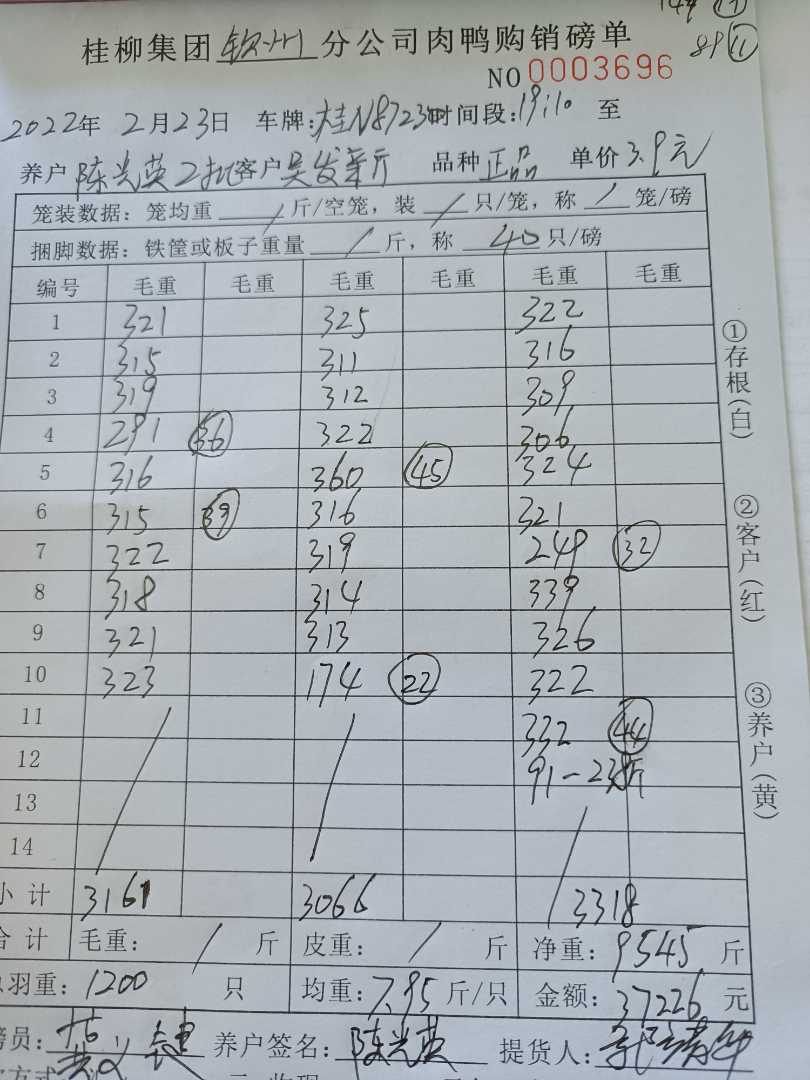 149 ⑪
89 ⑪
桂柳集团 钦州 分公司肉鸭购销磅单
NO 0003696
2022年 2月23日 车牌:桂N8723 时间段:19:10 至
养户 陈光英2批 客户 吴发 品种 正品 单价 3.9元
笼装数据: 笼均重 / 斤/空笼, 装 / 只/笼, 称 / 笼/磅
捆脚数据: 铁筐或板子重量 / 斤, 称 40 只/磅
编号 毛重 毛重 毛重 毛重 毛重 毛重
1 321 325 322
2 315 311 316
3 319 312 309
4 291 36 322 306
5 316 360 45 324
6 315 39 316 321
7 322 319 249 32
8 318 314 339
9 321 313 326
10 323 174 22 322
11 332 44
12 91-238斤
13
14
小计 3161 3066 3318
合计 毛重: / 斤 皮重: / 斤 净重: 9545 斤
羽重: 1200 只 均重: 7.95 斤/只 金额: 37226 元
磅员: 养户签名: 陈光英 提货人:
方式
①存根(白)
②客户(红)
③养户(黄)